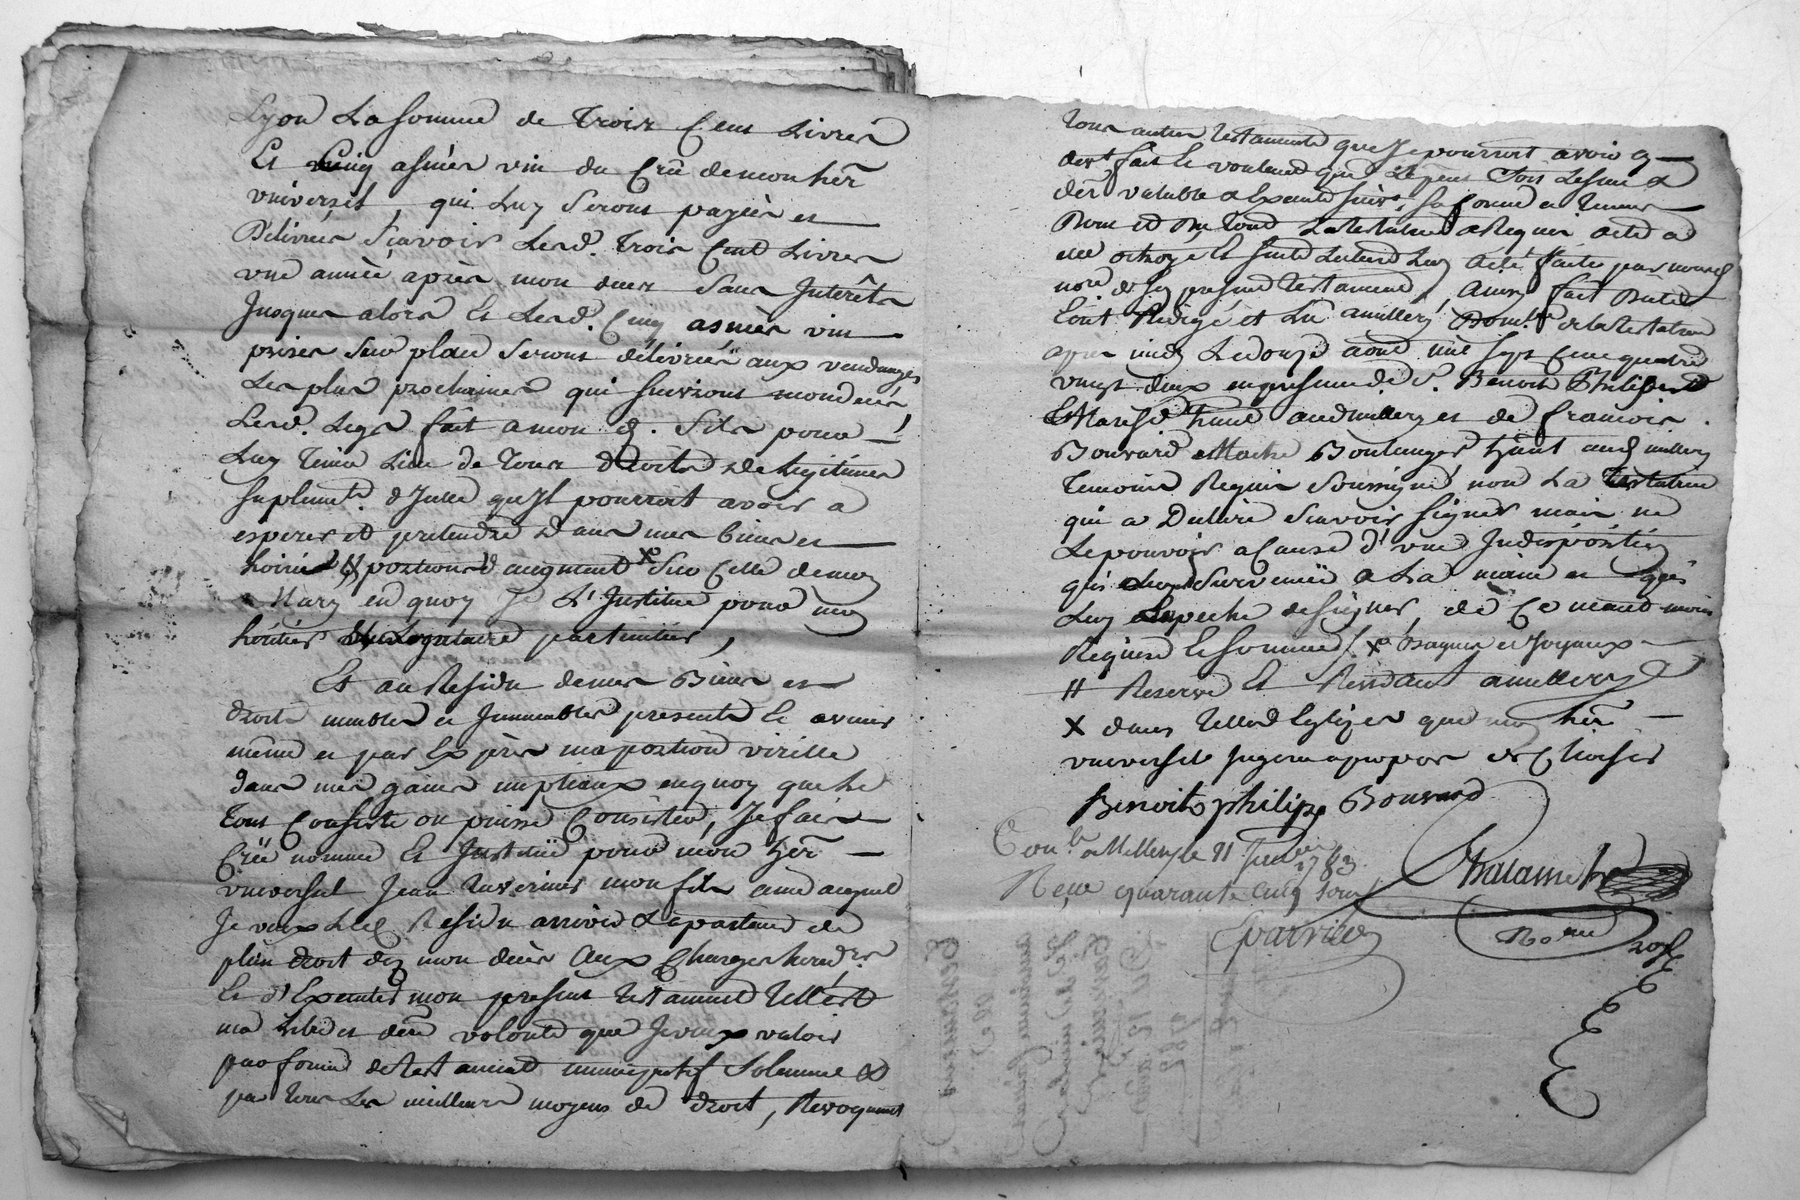 Lyon La somme de Trois Cens Livres
Et Cinq asnées vin du Crû de mon hēr
vniversel, qui Luy Seront payées et
Délivrées Scavoir Lesd. Trois Cent Livres
vne année après mon deces Sans Interêts
Jusques alors Et Lesd. Cinq asnées vin
prises Sur place Seront délivrées aux vendanges
Les plus prochaines qui Suivront mon deces,
Led. Legs fait a mon d. fils pour
Luy Tenir Lieu de Tous droits de Legitimes
Suplement d'Icelle qu'Il pourroit avoir a
esperer et pretendre Dans mes biens et
hoirie portion d'augment x Sur Celle de mon
Mary en quoy Je L'Institue pour mon
héritier Legataire particulier,
Et au Residu de mes Biens et
droits meubles et Immeubles presents Et avenir
même et par Exprès ma portion virille
Dans mes gains nuptiaux en quoy que Le
Tout Consiste ou puisse Consister, Je fais
Créé nomme Et Institüe pour mon hēr
vniversel Jean mon fils ainé auquel
Je veux Led Residu arriver & apartenir de
plein droit dez mon decès Aux Charges hered.res
Et d'Executer mon present Testament Telle est
ma Libre et dēre volonté que Je veux valoir
par forme de Testament nuncupatif Solemnel &
par Tous Les meilleurs moyens de droit, Revoquant
Tous autres Testaments que Je pourrois avoir cy
devt fait Et voulant que Le present Soit Le Seul &
dēr valable & Executé Suivt Sa forme et Teneur
Dont et Du Tout La testatrice a Requis acte a
elle octroyé Et Lecture Luy a été faite par nousd
nore de Son present Testament, Ainsy fait Dicté
Ecrit Redigé et Lu a millery Domle de la Testatrice
apres midy Le douze aout mil Sept Cent quatre
vingt deux en presence de S. Benoit Philippe
aud millery et de francois
Bouvard Maitre Boulanger hānt aud millery
Temoins Requis Soussignés non La Testatrice
qui a Declaré Scavoir signer mais ne
Le pouvoir a Cause d'vne Indisposition
qui Luy est Survenüe a La main et qui
Luy Empeche de Signer, de Ce
Requise Et Sommée /. x Bagues et Joyaux
# Reserve Et Resident a millery
x dans Telles Eglizes que mon hēr
vniversel Jugera a propos de Choisir
Benoit philippe Bouvard
Con.lé a Millery le 11 1783
Reçu quarante Cinq Sous
Nore